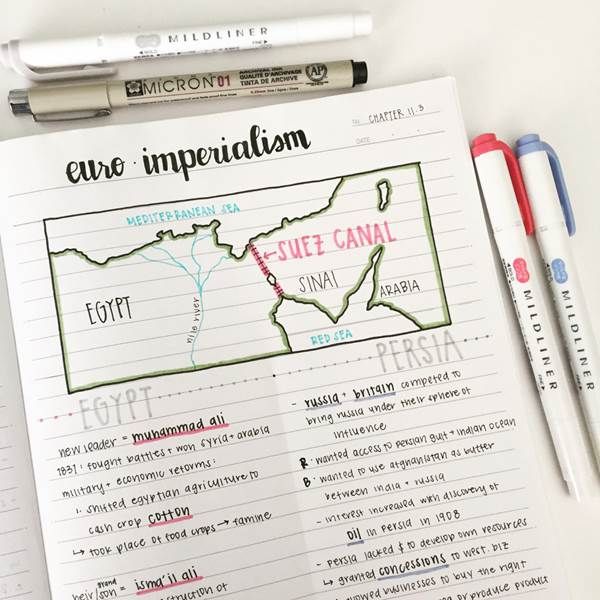 MILDLINER
MICRON 01
AP
TO. CHAPTER 11.3
DATE.
euro · imperialism
MEDITERRANEAN SEA
←SUEZ CANAL
EGYPT
SINAI
ARABIA
nile river
RED SEA
MILDLINER
MILDLINER
EGYPT
new leader = muhammad ali
1831: fought battles + won syria + arabia
military + economic reforms:
1. shifted egyptian agriculture to
cash crop cotton
↳ took place of food crops → famine
grand
heir/son = isma'il ali
PERSIA
- russia + britain competed to
bring russia under their sphere of
influence
R: wanted access to persian gulf + indian ocean
B: wanted to use afghanistan as buffer
between india + russia
- interest increased with discovery of
oil in persia in 1908
- persia lacked $ to develop own resources
↳ granted concessions to west. biz
allowed businesses to buy the right
or produce product